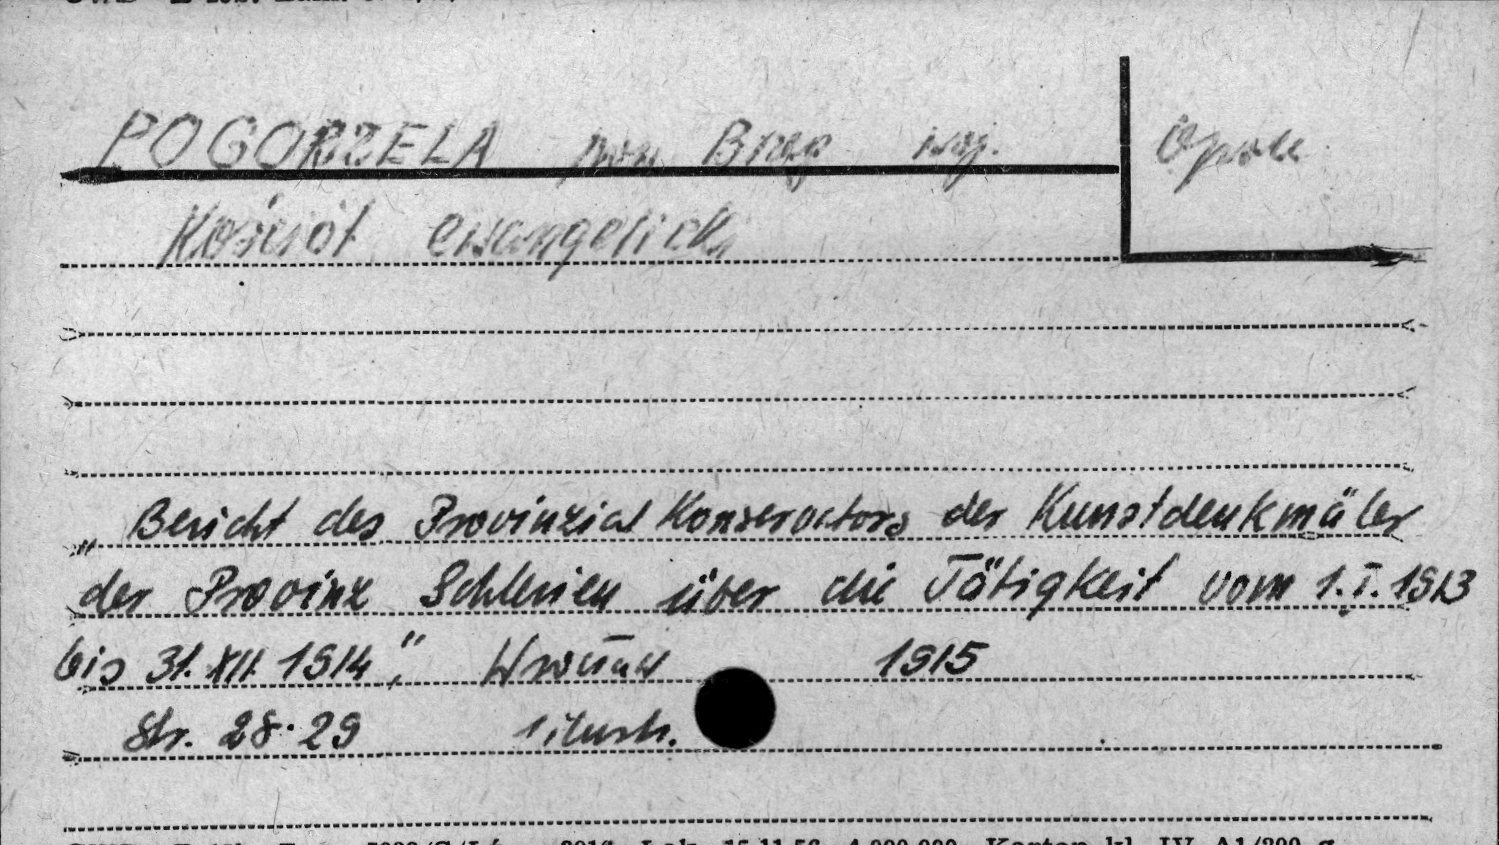 POGORZELA pow. Brzeg woj. Opole
Kościół ewangelicki
„Bericht des Provinzial Konservators der Kunstdenkmäler
der Provinz Schlesien über die Tätigkeit vom 1.I.1913
bis 31.XII 1914", Wrocław 1915
Str. 28-29 1 ilustr.